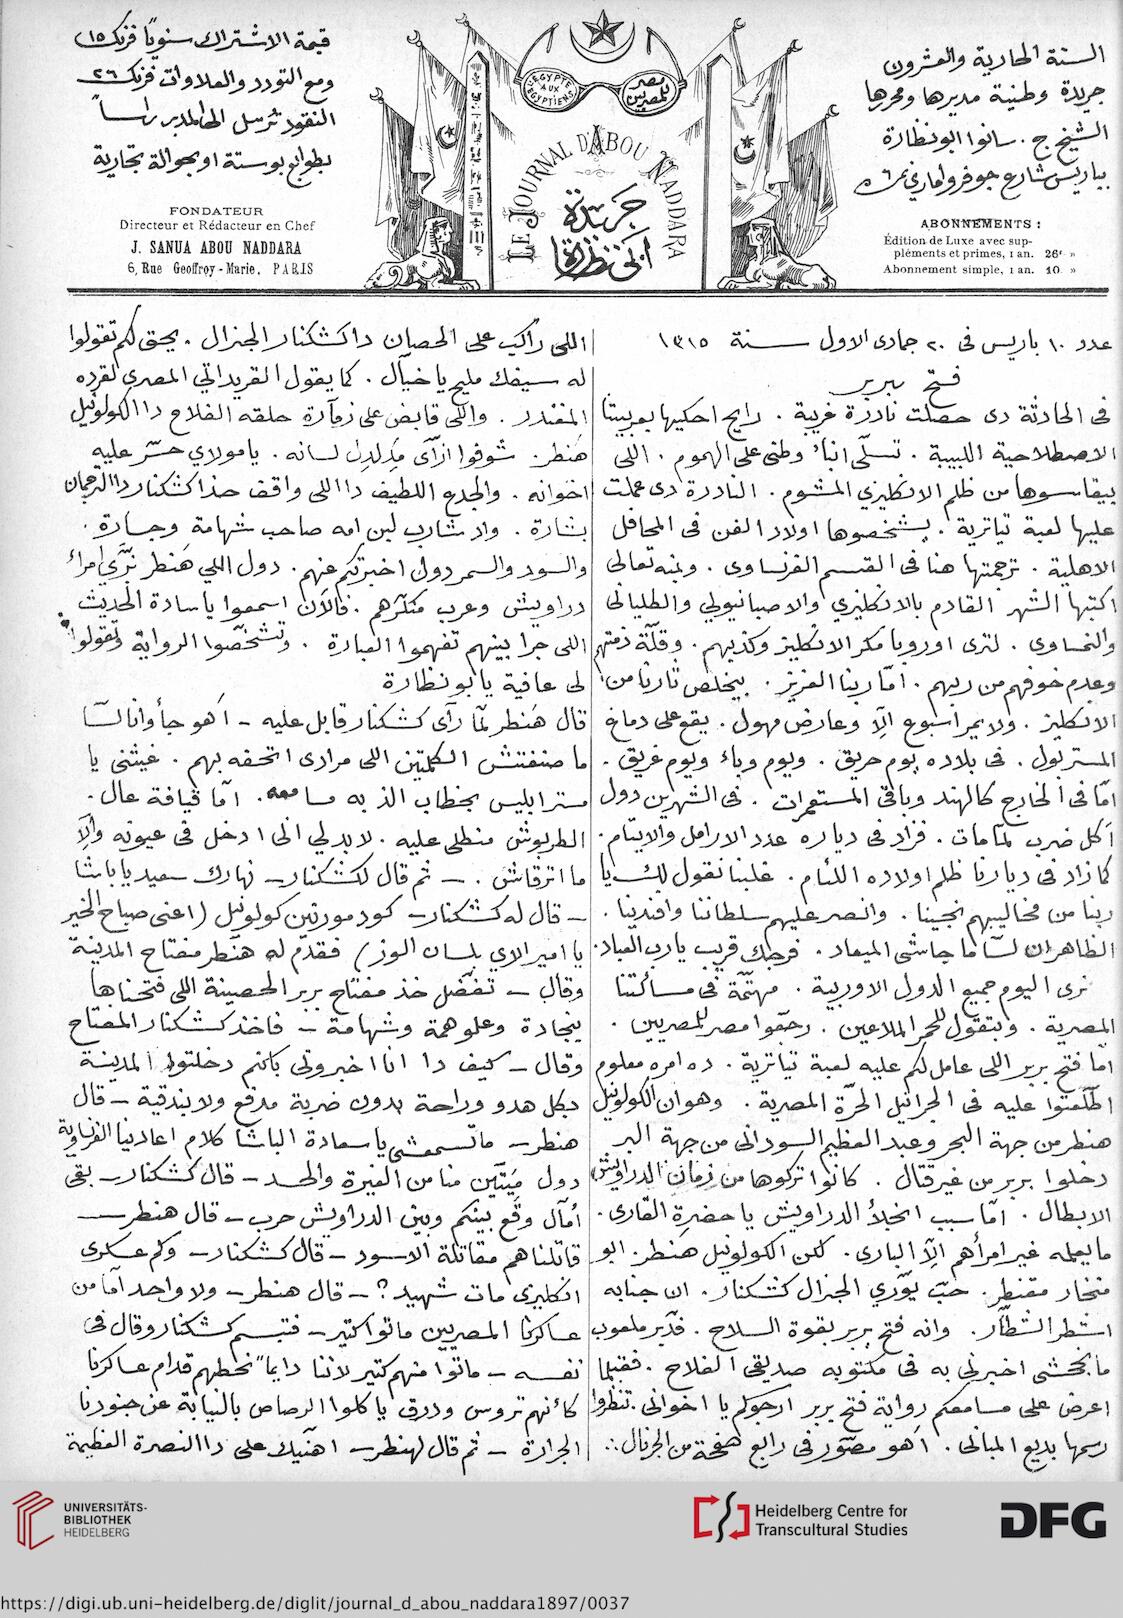 السنة الحادية والعشرون
جريدة وطنية مديرها ومحررها
الشيخ ج. سانوا ابو نظارة
بباريس شارع جوفروا ماري نمرة ٦
ABONNEMENTS :
Édition de Luxe avec sup-
pléments et primes, 1 an. 26f »
Abonnement simple, 1 an. 10 »
EGYPTE AUX EGYPTIENS
مصر للمصريين
LE JOURNAL D'ABOU NADDARA
جريدة
ابي نظارة
قيمة الاشتراك سنويًا فرنك ١٥
ومع التودد والعلاوات فرنك ٢٦
النقود ترسل الى المدير راسًا
بطوابع بوستة او بحوالة تجارية
FONDATEUR
Directeur et Rédacteur en Chef
J. SANUA ABOU NADDARA
6, Rue Geoffroy-Marie, PARIS
عدد ١٠ باريس في ٢٠ جمادى الاول سنة ١٣١٥
فتح بربر
في الحادثة دى حصلت نادرة غريبة . رايح احكيها بعربيتنا
الاصطلاحية اللبيبة . تسلّى ابناء وطنى على الهموم . اللى
بيقاسوها من ظلم الانكليزي المشوم . النادرة دى عملت
عليها لعبة تياترية . يشخصوها اولاد الفن في المحافل
الاهلية . ترجمتها هنا في القسم الفرنساوى . وبمنه تعالى
اكتبها الشهر القادم بالانكليزي والاصبانيولي والطليانى
والنمساوى . لترى اوروبا مكر الانكليز وكذبهم . وقلّة ذمتهم
وعدم خوفهم من ربهم . امّا ربنا العزيز . بيخلص تارنا من
الانكليز . ولا يمر اسبوع الّا وعارض مهول . يقع على دماغ
المستر بول . في بلاده يوم حريق . ويوم وباء ويوم غريق .
امّا في الخارج كالهند وباقى المستعمرات . في الشهرين دول
اكل ضرب لمّا مات . فزاد في دياره عدد الارامل والايتام .
كما زاد في ديارنا ظلم اولاده اللئام . غلبنا نقول لك يا
ربنا من مخاليبهم نجينا . وانصر عليهم سلطاننا وافندينا .
الظاهر ان لسّا ما جاشى الميعاد . فرجك قريب يا رب العباد .
نرى اليوم جميع الدول الاوربية . مهتمّة في مسألتنا
المصرية . وبتقول للحمر الملاعين . رجّعوا مصر للمصريين .
امّا فتح بربر اللى عامل لكم عليه لعبة تياترية . ده امره معلوم
اطّلعتوا عليه في الجرانيل الحرّة المصرية . وهو ان الكولونيل
هنطر من جهة البحر وعبد العظيم السودانى من جهة البر
دخلوا بربر من غير قتال . كانوا تركوها من زمان الدراويش
الابطال . امّا سبب اخلاء الدراويش يا حضرة القارى .
ما يعلمه غير امرأهم الّا البارى . لكن الكولونيل هنطر . ابو
منخار مقنطر . حبّ يورّي الجنرال كتشكنار . ان جنابه
اشطر الشطّار . وانه فتح بربر بقوة السلاح . فدبّر ملعوب
ما يخشى اخبرنى به في مكتوبه صديقى الفلاح . فقبلما
اعرض على مسامعكم رواية فتح بربر ارجوكم يا اخوانى . تنظروا
رسمها بديع المبانى . اهو مصوّر في رابع صفحة من الجرنال .
اللى راكب على الحصان دا كتشكنار الجنرال . يحق لكم تقولوا
له سيفك مليح يا خيّال . كما يقول القرداتي المصرى لقرده
المغندر . واللى قابض على زمّارة حلقه الفلاح دا الكولونيل
هنطر . شوفوا ازّاى مدلدل لسانه . يا مولاي حسّر عليه
اخوانه . والجدع اللطيف دا اللى واقف حدا كتشكنار دا الترجمان
بشارة . واد شارب لبن امه صاحب شهامة وجسارة .
والسود والسمر دول اخبرتكم عنهم . دول اللي هنطر بزّى امراء
دراويش وعرب منكّرهم . فالآن اسمعوا يا سادة الحديث
اللى جرا بينهم تفهموا العبارة . وتشخّصوا الرواية وتقولوا
لى عافية يا ابو نظارة
قال هنطر لمّا رآى كتشكنار قابل عليه – اهو جا وانا لسّا
ما صنفتش الكلمتين اللى مرادى اتحفه بهم . غيثنى يا
مستر ابليس بخطاب الذ به مسامعه . امّا قيافة عال .
الطربوش منطلى عليه . لابد لي انى ادخل في عيونه والّا
ما اترقاش . – ثم قال لكتشكنار – نهارك سعيد يا باشا
– قال له كتشكنار – كود مورنين كولونيل (اعنى صباح الخير
يا امير الاي بلسان الوز) فقدّم له هنطر مفتاح المدينة
وقال – تفضّل خذ مفتاح بربر الحصينة اللى فتحناها
بنجادة وعلو همة وشهامة – فاخذ كتشكنار المفتاح
وقال – كيف دا انا اخبرونى بانكم دخلتوا المدينة
دبكل هدو وراحة بدون ضربة مدفع ولا بندقية – قال
هنطر – ما تسمعشى يا سعادة الباشا كلام اعادينا الفرنساوية
دول ميّتين منا من الغيرة والحسد – قال كتشكنار – بقى
امآل وقع بينكم وبين الدراويش حرب – قال هنطر –
قاتلناهم مقاتلة الاسود – قال كتشكنار – وكم عسكرى
انكليزى مات شهيد ؟ – قال هنطر – ولا واحد امّا من
عساكرنا المصريين ماتوا كتير – فتبسم كتشكنار وقال في
نفسه – ماتوا منهم كتير لأننا دايمًا نحطهم قدام عساكرنا
كأنهم تروس ودرق ياكلوا الرصاص بالنيابة عن جنودنا
الجرارة – ثم قال لهنطر – اهنّيك على دا النصرة العظيمة
UNIVERSITÄTS-
BIBLIOTHEK
HEIDELBERG
Heidelberg Centre for
Transcultural Studies
DFG
https://digi.ub.uni-heidelberg.de/diglit/journal_d_abou_naddara1897/0037